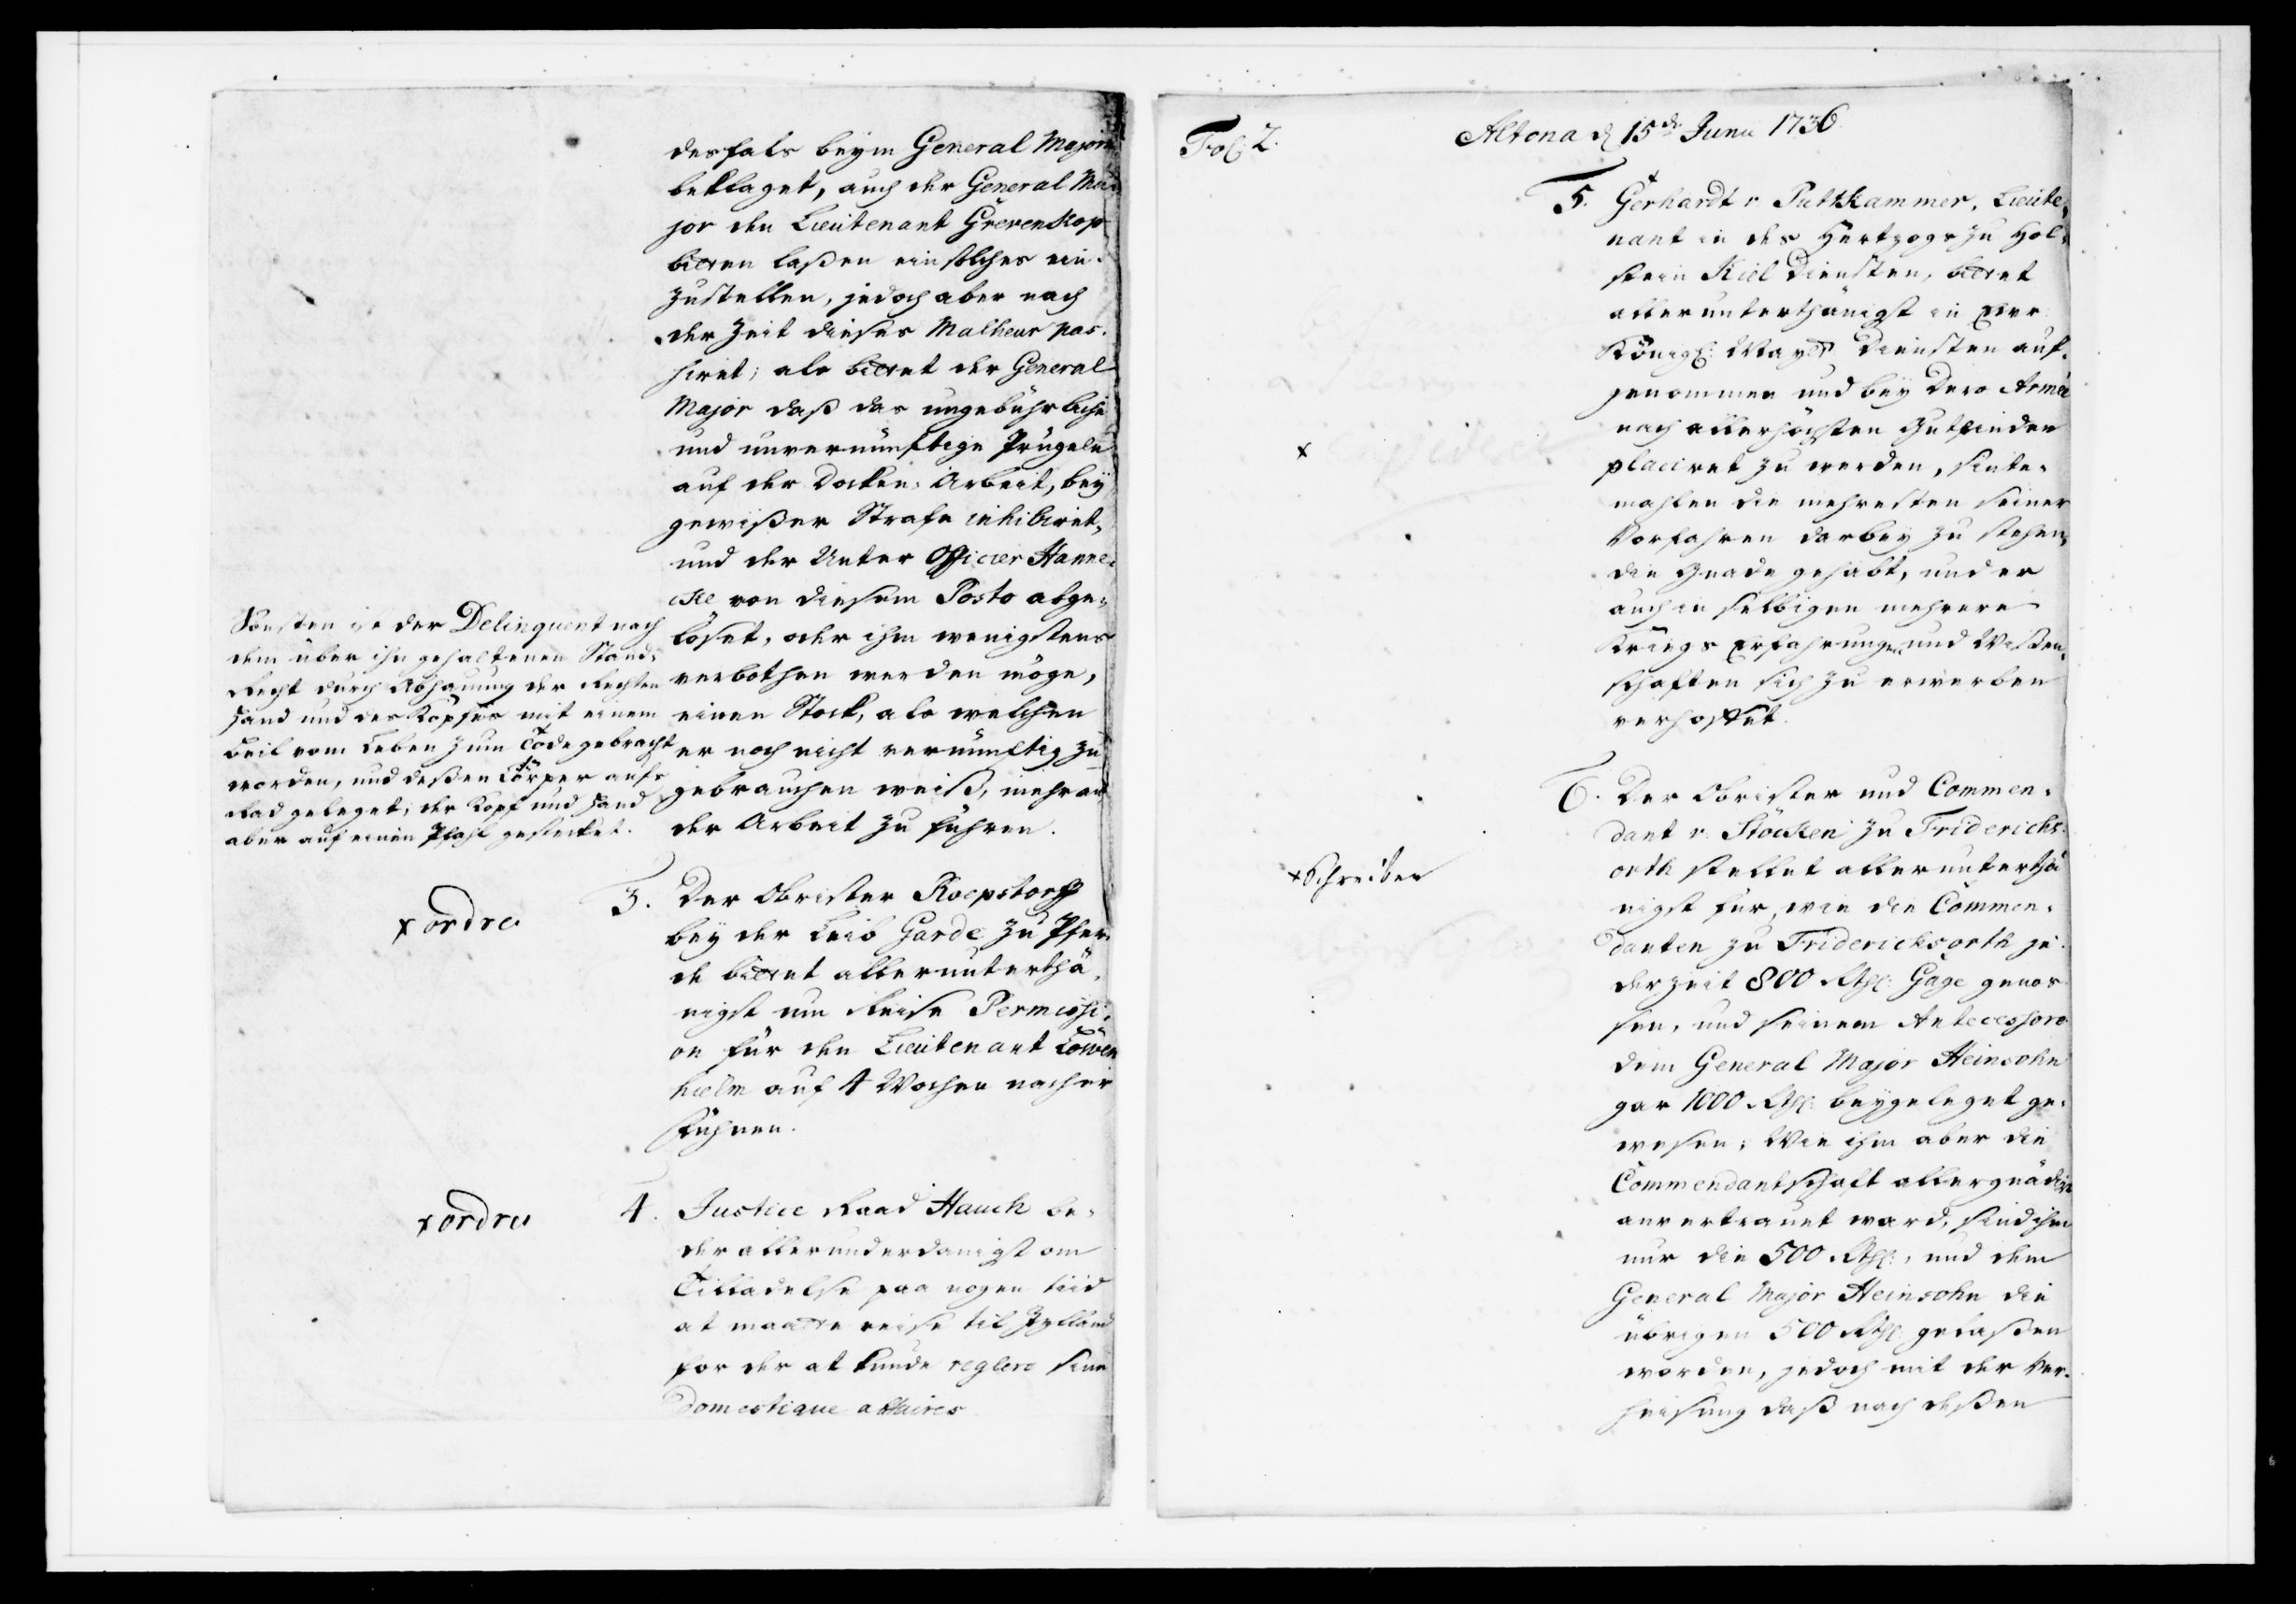 desfals beym General Major
beklaget, auch der General Ma¬
jor den Lieutenant Grevenkop
bitten laßen ein solches ein¬
zustellen, jedoch aber nach
der Zeit dieses Malheur pas¬
siret; als bittet der General
Major daß das ungebührliche
und unvernünftige Prügeln
auf der Docken-Arbeit, bey
gewißer Strafe inhibiret,
und der Unter Officier Hanne¬
cke von diesem Posto abge¬
löset, oder ihm wenigstens
verbothen werden möge,
einen Stock, als welchen
er noch nicht vernünftig zu
gebrauchen weiß, mehr an
der Arbeit zu führen.
Sonsten ist der Delinquent nach
dem über ihn gehaltenen Stand¬
Recht durch Abhauung der Rechten
Hand und des Kopfes mit einem
Beil vom Leben zum Tode gebracht
worden, und deßen Cörper aufs
Rad geleget, der Kopf und Hand
aber auf einen Pfahl gestecket.
x ordre
3. Der Obrister Roepstorff
bey der Leib Garde zu Pfer¬
de bittet allerunterthä¬
nigst um Reise Permissi¬
on für den Lieutenant Löwen
hielm auf 4 Wochen nacher
Fühnen.
x ordre
4. Justice Raad Hauch be¬
der allerunderdanigst om
Tilladelse paa nogen tiid
at maatte reise til Jylland
for der at kunde reglere sine
Domestique affaires
Fol: 2.
Altona d 15de Junii 1736
5. Gerhardt v Puttkammer, Lieute¬
nant in des Hertzogs zu Hol¬
stein Kiel Diensten, bittet
allerunterthänigst in Ewr
Königl: Maytt Diensten auf¬
genommen und bey Dero Armée
nach allerhöchsten Gutfinden
placiret zu werden, sinte¬
mahlen die mehresten seiner
Vorfahren darbey zu stehen,
die Gnade gehabt, und er
auch in selbigen mehrere
Kriegs Erfahrungen und Wißen¬
schaften sich zu erwerben
verhoffet.
x
6. Der Obrister und Commen¬
dant v. Stöcken zu Friderichs¬
orth stellet allerunterthä
nigst für, wie die Commen¬
danten zu Friderichsorth je¬
derzeit 800 Rthl: Gage genos
sen, und seinem Antecessori
dem General Major Heinsohn
gar 1000 Rthl: beygeleget ge¬
wesen; Wie ihm aber die
Commendantschaft allergnädigst
anvertrauet ward, sind ihm
nur die 500 Rthl:, und dem
General Major Heinsohn die
übrigen 500 Rthl: gelaßen
worden, jedoch mit der Ver¬
heisung daß nach deßen
x Schreiben